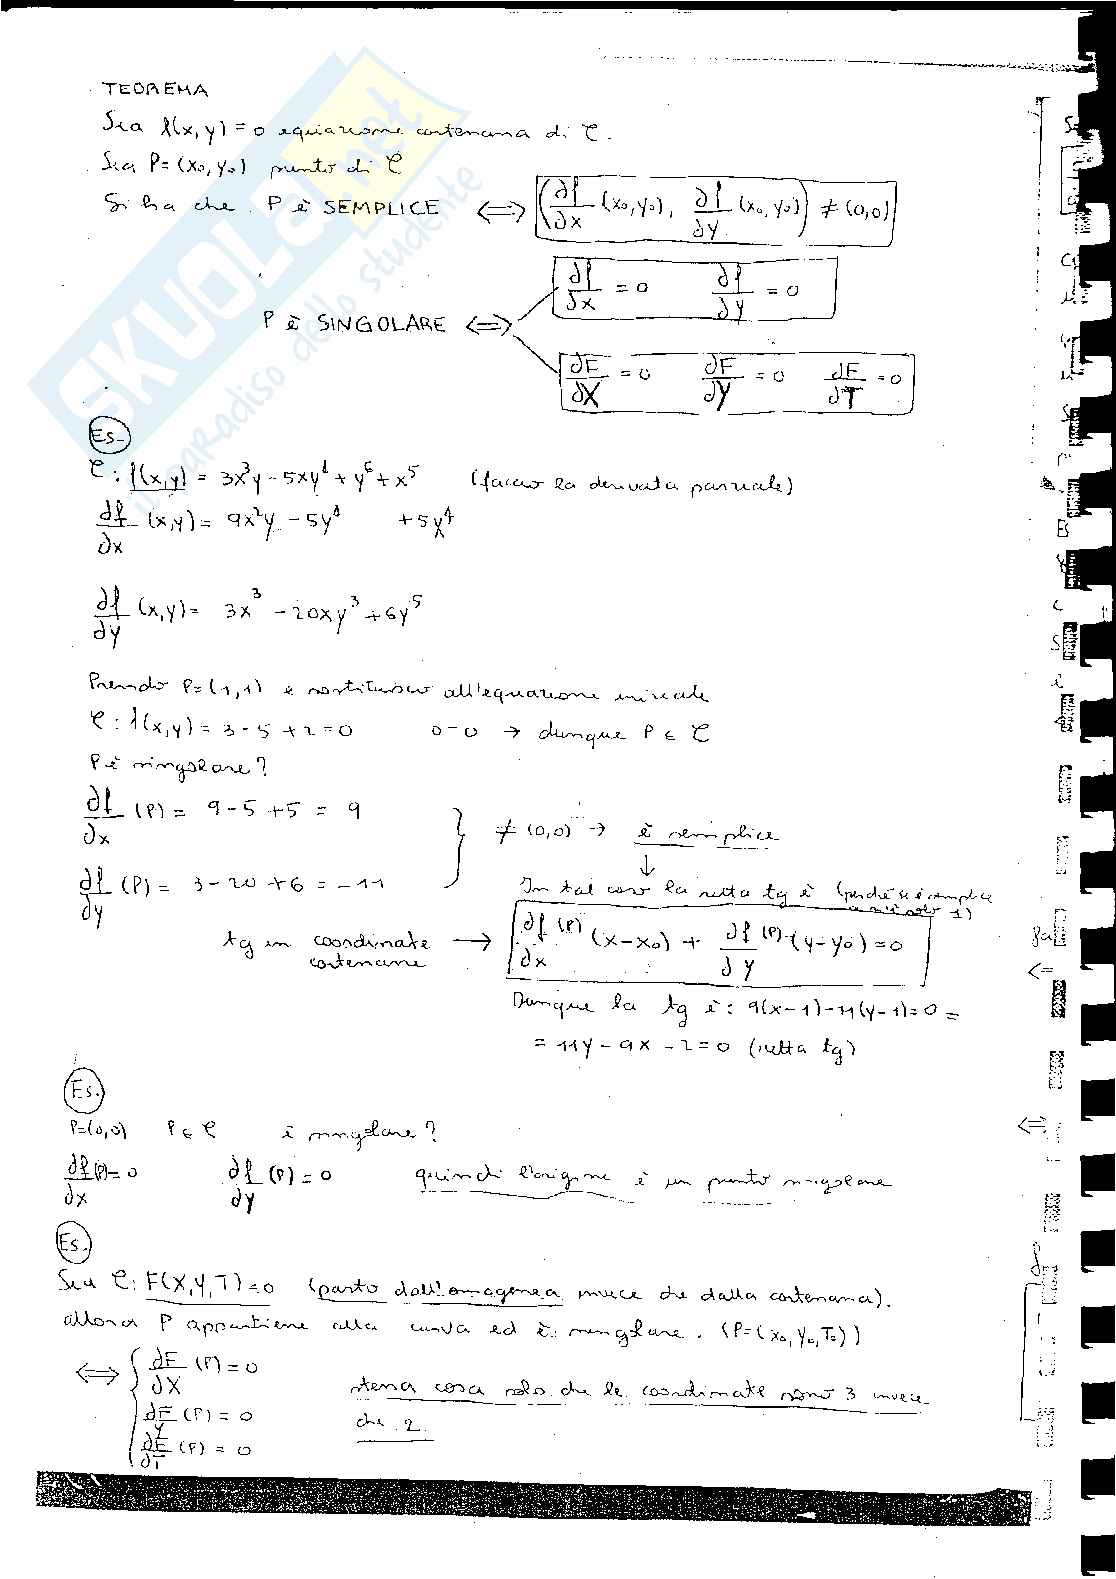 TEOREMA
Sia f(x,y)=0 equazione cartesiana di C.
Sia P=(x₀,y₀) punto di C
Si ha che P è SEMPLICE ⟺ (∂f/∂x (x₀,y₀), ∂f/∂y (x₀,y₀)) ≠ (0,0)
∂f/∂x = 0 ∂f/∂y = 0
P è SINGOLARE ⟺
∂F/∂X = 0 ∂F/∂Y = 0 ∂F/∂T = 0
Es.
C: f(x,y) = 3x³y - 5xy⁴ + y⁶ + x⁵ (faccio la derivata parziale)
∂f/∂x (x,y) = 9x²y - 5y⁴ + 5x⁴
∂f/∂y (x,y) = 3x³ - 20xy³ + 6y⁵
Prendo P=(1,1) e sostituisco all'equazione iniziale
C: f(x,y) = 3-5+2=0 0=0 → dunque P ∈ C
P è singolare?
∂f/∂x (P) = 9-5+5 = 9
≠ (0,0) → è semplice
∂f/∂y (P) = 3-20+6 = -11
↓
In tal caso la retta tg è (perché se è semplice ce n'è solo 1)
tg in coordinate cartesiane → ∂f/∂x (P) (x-x₀) + ∂f/∂y (P) (y-y₀) = 0
Dunque la tg è: 9(x-1)-11(y-1)=0 =
= 11y-9x-2=0 (retta tg)
Es.
P=(0,0) P ∈ C è singolare?
∂f/∂x (P)=0 ∂f/∂y (P)=0 quindi l'origine è un punto singolare
Es.
Sia C: F(X,Y,T)=0 (parto dall'omogenea invece che dalla cartesiana).
allora P appartiene alla curva ed è singolare. (P=(x₀,y₀,T₀))
⟺ { ∂F/∂X (P) = 0
∂F/∂Y (P) = 0
∂F/∂T (P) = 0
stessa cosa solo che le coordinate sono 3 invece
che 2.
SKUOLA.net
il paradiso dello studente